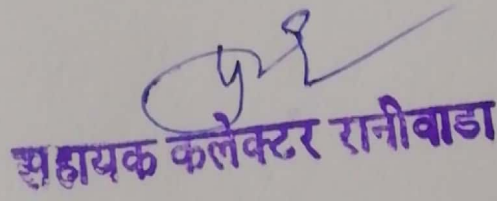 सहायक कलेक्टर रानीवाडा